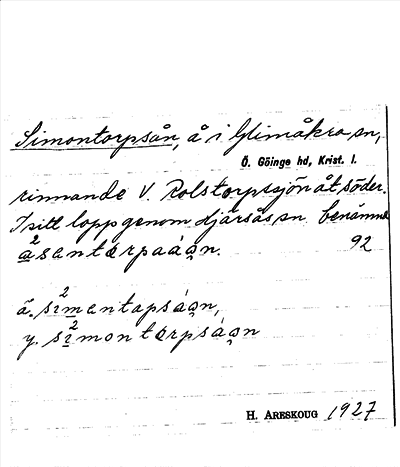 Simontorpsån, å i Glimåkra sn,
Ö. Göinge hd, Krist. l.
rinnande V. Rolstorpssjön åt söder.
I sitt lopp genom Hjärsås sn benämnes
2
asantarpaan.
92
2
ä. simantapsáan,
2
y. simontarpsáan
H. ARESKOUG 1927